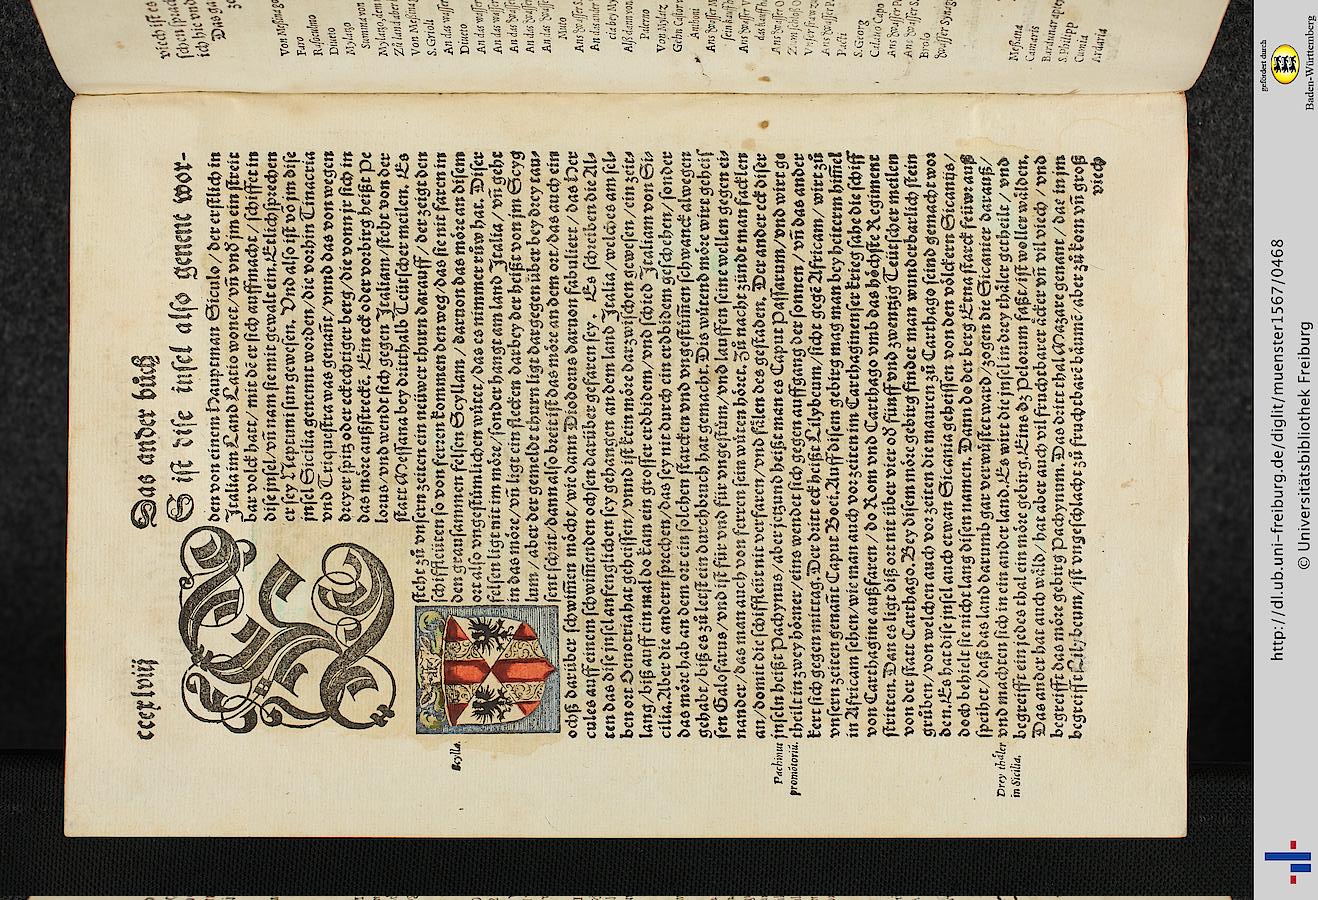 ccclxviij
Das ander buͦch
SO ist dise insel also genent wor-
den von einem Hauptman Siculo / der erstlich in
Italia im Land Latio wonet / vñ vnd jm ein streit
hat volck hatt / mit dẽ er sich auffmacht / schiffet in
dise insel / vñ nam sie mit gewalt ein. Etlich sprechen
er sey Neptuni sun gewesen. Vnd also ist võ jm dise
insel Sicilia genennt worden / die vorhin Trinacria
vnd Triquetra was genañt / vnnd das von wegen
dreyer spitz oder eckechtiger berg / die von jr sich in
das moͤre außstreckẽ. Ein eck oder vorbirg heißt Pe
lorus / vnd wende sich gegen Italiam / steht von der
statt Messana bey dritthalb Teütscher meilen. Es
steht zuͦ vnsern zeiten ein neüwer thurn darauff / der zeigt den
schiffleüten so von ferren kommen den weg / das sie nit faren in
den grausammen felsen Scyllam / daruon das moͤre an disem
ort also vngestuͤmlichen wuͤtet / das es nimmer ruͦw hat. Diser
felsen ligt nit im moͤre / sonder hangt am land Italia / vñ geht
in das moͤre / vñ ligt ein flecken darbey der heißt von jm Scyg
lium / aber der gemeldt thurn ligt dargegen über bey drey tau-
sent schrit / dann also breit ist das moͤre an dem ort / das auch ein
ochß daruͤber schwimmen moͤcht / wie dann Diodorus daruon fabuliert / das Her
cules auff einem schwimenden ochsen daruͤber gefaren sey. Es schreiben die Al-
ten das dise insel anfencklichen sey gehangen an dem land Italia / welches am sel-
ben ort Oenotria hat geheissen / vnnd ist kein moͤre darzwischen gewesen / ein zeit-
lang / biß auff ein mal do kam ein grosser erdbidem / vnd schied Italiam von Si-
cilia. Aber die andern sprechen / das sey nit durch ein erdbidem geschehen / sonder
das moͤre hab an dem ort ein solchen starcken vnd vngestuͤmen schwanck alwegen
gehabt / biß es zuͦ letst ein durchbruch hat gemacht. Dis wuͤtend moͤre wirt geheis
sen Galofarus / vnd ist fuͤr vnd fuͤr vngestuͤm / vnd lauffen seine wellen gegen ei-
nander / das man auch von ferrem sein wuͤten hoͤret. Zuͦ nacht zuͤndt man facklen
an / domit die schiffleüt nit verfaren / vnd faͤlen des gestaden. Der ander eck diser
inseln heißt Pachynus / aber jetzund heißt man es Caput Passarum / vnd wirt ge
theilt in zwey hoͤrner / eins wendet sich gegen auffgang der sonnen / vñ das ander
kert sich gegen mittag. Der dritt eck heißt Lilybeum / sicht gegẽ Africam / wirt zuͦ
vnsern zeiten genañt Caput Boei. Auß disem gebirg mag man bey heiterm him̃el
in Africam sehen / wie man auch vor zeiten im Carthaginenser krieg sahe die schiff
von Carthagine außfaren / do Rom vnd Carthago vmb das hoͤchste Regiment
stritten. Dan es ligt diß ort nit über vier oď fuͤnff vnd zwentzig Teütscher meilen
von der statt Carthago. Bey disem moͤre gebirg findet man wunderbarlich stein
gruͤben / von welchen auch vor zeiten die mauren zuͦ Carthago seind gemacht wor
den. Es hat dise insel auch etwan Sicania geheissen von den voͤlckern Sicanijs /
doch behielt sie nicht lang disen namen. Dann do der berg Etna starck feüwr auß
speitet / daß das land darumb gar verwuͤstet ward / zogen die Sicanier darauß /
vnd machten sich in ein ander land. Es wirt die insel in drey thaͤler getheilt / vnd
begreifft ein jedes thal ein moͤre gebirg. Eins dz Pelorum faßt / ist voller waͤlden.
Das ander hat auch waͤld / hat aber auch vil fruchtbaren aͤcker vñ vil viech / vnd
begreifft das moͤre gebirg Pachynum. Das dritt thal Mazare genant / dae in jm
begreifft Lilybeum / ist vngeschlacht zuͦ fruchtbarẽ baͤume aber zuͦ korn vñ groß
viech
Scylla.
Pachinus
promōtoriū.
Drey thaͤler
in Sicilia.
Von Messina ge
Faro
Rasculmo
Diueto
Mylazo
Summa von
Von Messina
S. Grisli
Diueto
Muto
Paterno
S. Georg
Brolo
Messana
Camaris
S. Philipp
Cionia
http://dl.ub.uni-freiburg.de/diglit/muenster1567/0468
© Universitätsbibliothek Freiburg
gefördert durch
Baden-Württemberg